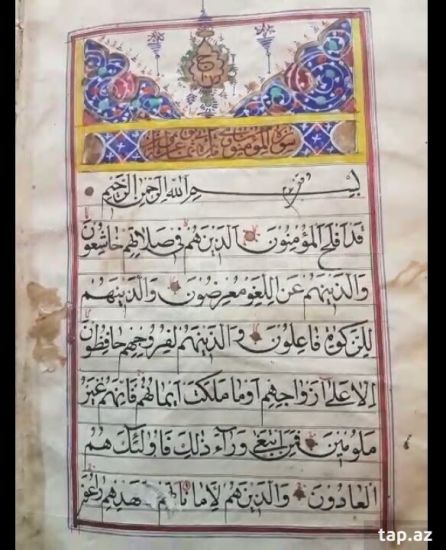 سورة المؤمنون
بسم الله الرحمن الرحيم
قد افلح المؤمنون الذينهم في صلاتهم خاشعون
والذينهم عن اللغو معرضون والذينهم
للزكوة فاعلون والذينهم لفروجهم حافظون
الا على ازواجهم او ما ملكت ايمانهم فانهم غير
ملومين فمن ابتغى ورآء ذلك فاولئك هم
العادون والذينهم لاماناتهم وعهدهم راعو
tap.az